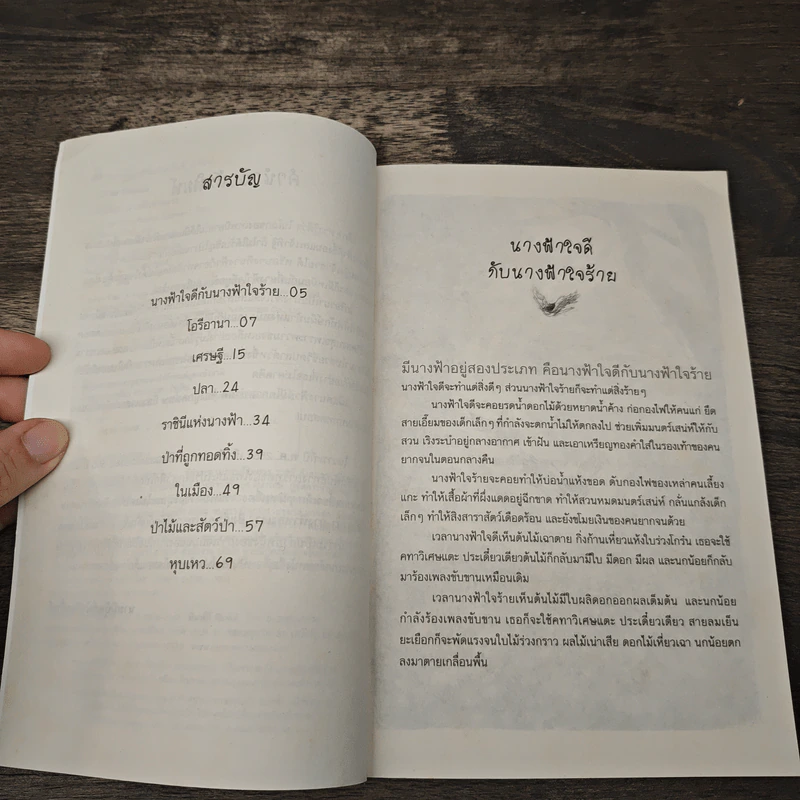 สารบัญ
นางฟ้าใจดีกับนางฟ้าใจร้าย...05
โอรีอานา...07
เศรษฐี...15
ปลา...24
ราชินีแห่งนางฟ้า...34
ป่าที่ถูกทอดทิ้ง...39
ในเมือง...49
ป่าไม้และสัตว์ป่า...57
หุบเหว...69
นางฟ้าใจดี
กับนางฟ้าใจร้าย
มีนางฟ้าอยู่สองประเภท คือนางฟ้าใจดีกับนางฟ้าใจร้าย
นางฟ้าใจดีจะทำแต่สิ่งดีๆ ส่วนนางฟ้าใจร้ายก็จะทำแต่สิ่งร้ายๆ
นางฟ้าใจดีจะคอยรดน้ำดอกไม้ด้วยหยาดน้ำค้าง ก่อกองไฟให้คนแก่ ยึด
สายเอี๊ยมของเด็กเล็กๆ ที่กำลังจะตกน้ำไม่ให้ตกลงไป ช่วยเพิ่มมนตร์เสน่ห์ให้กับ
สวน เริงระบำอยู่กลางอากาศ เข้าฝัน และเอาเหรียญทองคำใส่ในรองเท้าของคน
ยากจนในตอนกลางคืน
นางฟ้าใจร้ายจะคอยทำให้บ่อน้ำแห้งขอด ดับกองไฟของเหล่าคนเลี้ยง
แกะ ทำให้เสื้อผ้าที่ผึ่งแดดอยู่ฉีกขาด ทำให้สวนหมดมนตร์เสน่ห์ กลั่นแกล้งเด็ก
เล็กๆ ทำให้สิงสาราสัตว์เดือดร้อน และยังขโมยเงินของคนยากจนด้วย
เวลานางฟ้าใจดีเห็นต้นไม้เฉาตาย กิ่งก้านเหี่ยวแห้งใบร่วงโกร๋น เธอจะใช้
คทาวิเศษแตะ ประเดี๋ยวเดียวต้นไม้ก็กลับมามีใบ มีดอก มีผล และนกน้อยก็กลับ
มาร้องเพลงขับขานเหมือนเดิม
เวลานางฟ้าใจร้ายเห็นต้นไม้มีใบผลิดอกออกผลเต็มต้น และนกน้อย
กำลังร้องเพลงขับขาน เธอก็จะใช้คทาวิเศษแตะ ประเดี๋ยวเดียว สายลมเย็น
ยะเยือกก็จะพัดแรงจนใบไม้ร่วงกราว ผลไม้เน่าเสีย ดอกไม้เหี่ยวเฉา นกน้อยตก
ลงมาตายเกลื่อนพื้น